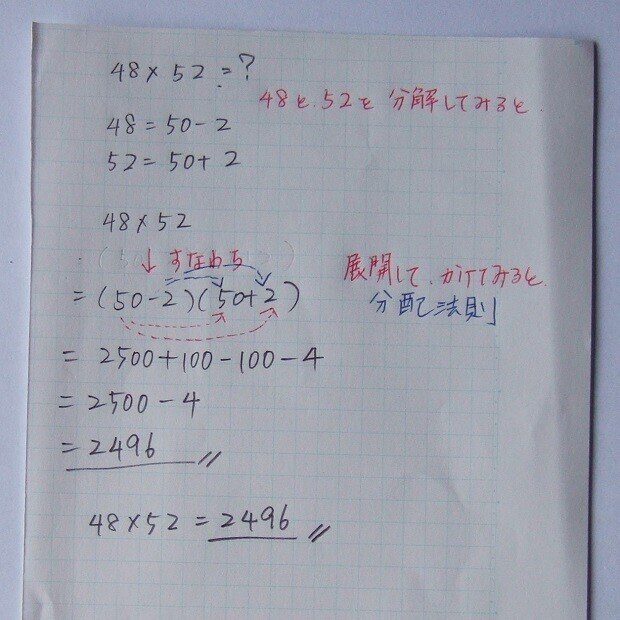 48×52=?
48と、52を分解してみると、
48=50-2
52=50+2
48×52
↓すなわち
=(50-2)(50+2)
展開して、かけてみると、
分配法則
=2500+100-100-4
=2500-4
=2496
48×52=2496